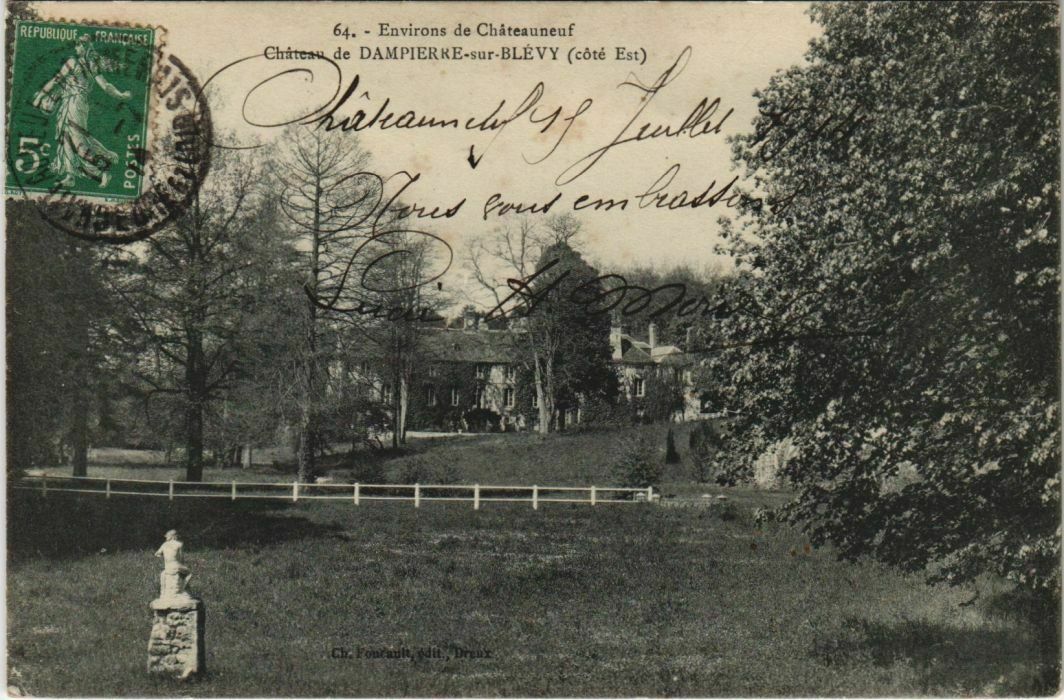 RÉPUBLIQUE FRANÇAISE
5c POSTES
64. - Environs de Châteauneuf
Château de DAMPIERRE-sur-BLÉVY (côté Est)
Châteauneuf 15 Juillet
Nous vous embrassons
Ch. Foucault, édit., Dreux